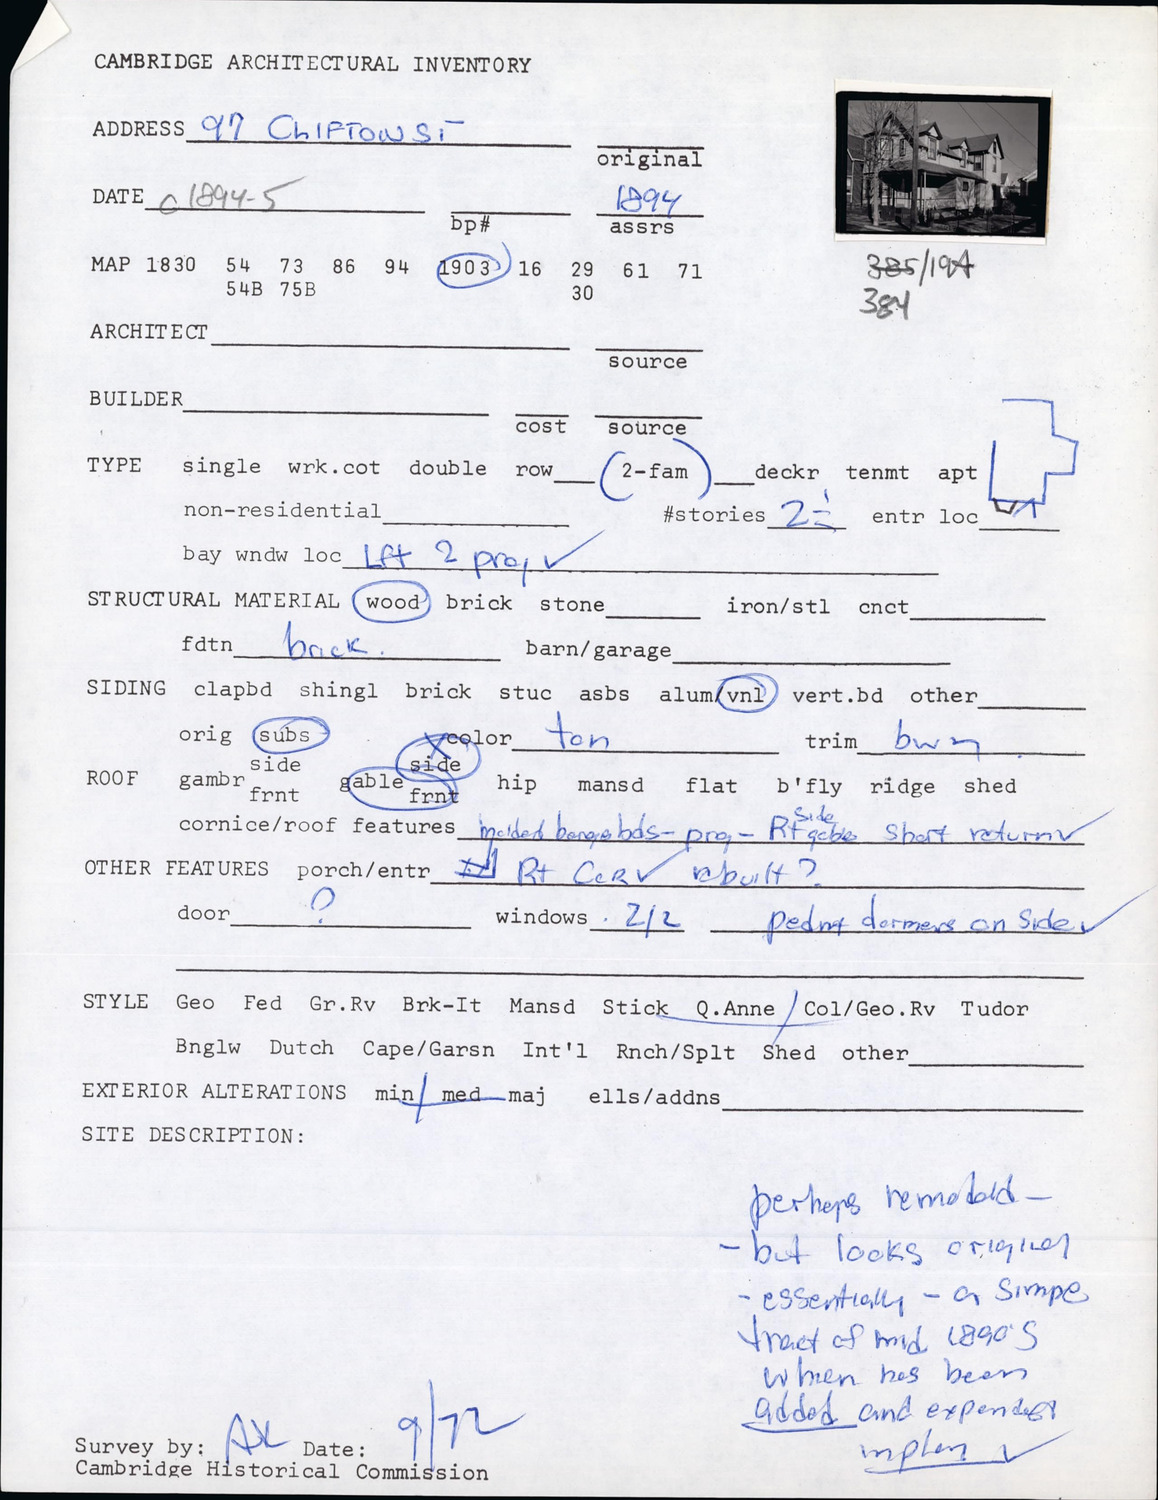 CAMBRIDGE ARCHITECTURAL INVENTORY
ADDRESS 97 CLIFTON ST
original
DATE c 1894-5 1894
bp# assrs
MAP 1830 54 73 86 94 1903 16 29 61 71
54B 75B 30
385/19A
384
ARCHITECT
source
BUILDER
cost source
TYPE single wrk.cot double row 2-fam deckr tenmt apt
non-residential #stories 2½ entr loc
bay wndw loc Lft 2 proj ✓
STRUCTURAL MATERIAL wood brick stone iron/stl cnct
fdtn brick. barn/garage
SIDING clapbd shingl brick stuc asbs alum/vnl vert.bd other
orig subs color tan trim bwn
ROOF gambr side frnt gable side frnt hip mansd flat b'fly ridge shed
cornice/roof features molded bargebds - proj - Rt side gable short return ✓
OTHER FEATURES porch/entr Rt Cor ✓ rebuilt?
door ? windows 2/2 pedmt dormers on side ✓
STYLE Geo Fed Gr.Rv Brk-It Mansd Stick Q.Anne Col/Geo.Rv Tudor
Bnglw Dutch Cape/Garsn Int'l Rnch/Splt Shed other
EXTERIOR ALTERATIONS min med maj ells/addns
SITE DESCRIPTION:
perhaps remodeld -
- but looks original
- essentially - a simple
tract of mid 1890's
when has been
added and expended
in plan ✓
Survey by: AK Date: 9/72
Cambridge Historical Commission